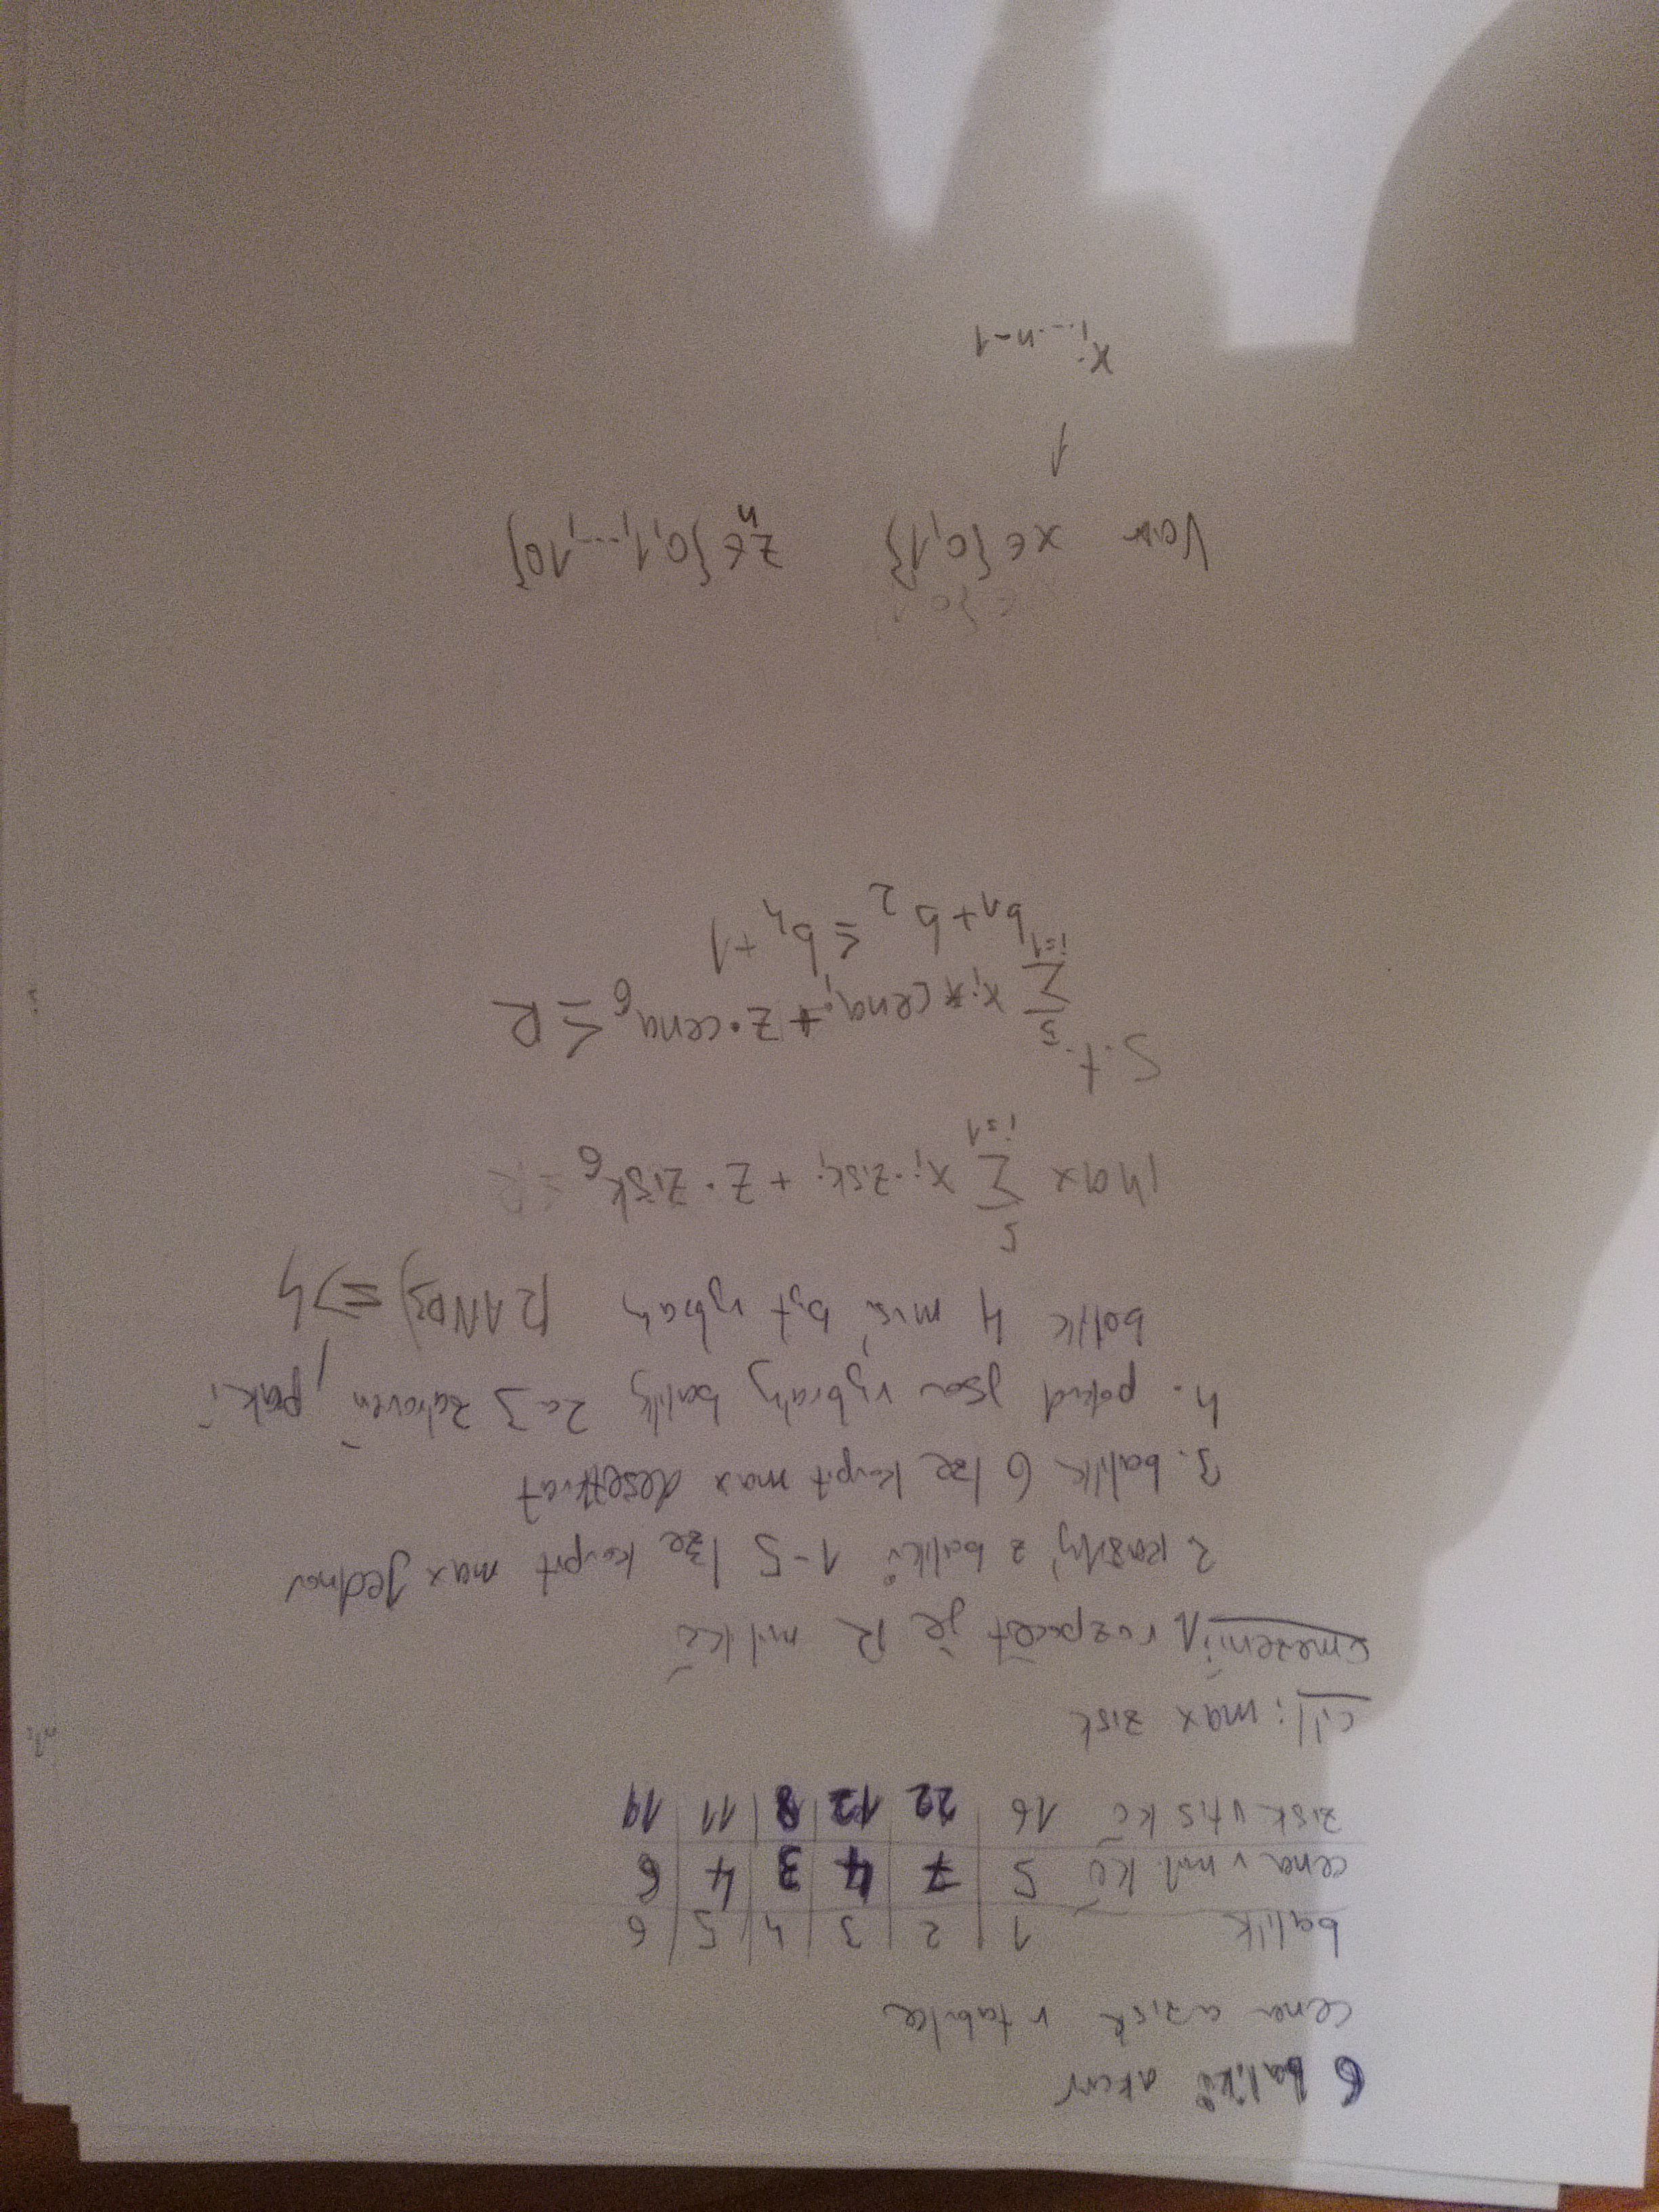 6 balíků akcií
cena a zisk v tabulce
balík 1 2 3 4 5 6
cena v mil. Kč 5 7 4 3 4 6
zisk v tis kč 16 22 12 8 11 19
cíl: max zisk
omezení: 1. rozpočet je R mil kč
2. každý z balíků 1-5 lze koupit max jednou
3. balík 6 lze koupit max desetkrát
4. pokud jsou vybrány balíky 2 a 3 zároveň, pak i
balík 4 musí být vybrán (2 AND 3) => 4
max ∑_{i=1}^{5} x_i · zisk_i + z · zisk_6 ≤ R
s.t.
∑_{i=1}^{5} x_i * cena_i + z · cena_6 ≤ R
b_1 + b_2 ≤ b_4 + 1
Var x ∈ {0,1} z_n ∈ {0,1,...,10}
x_{i...n-1}